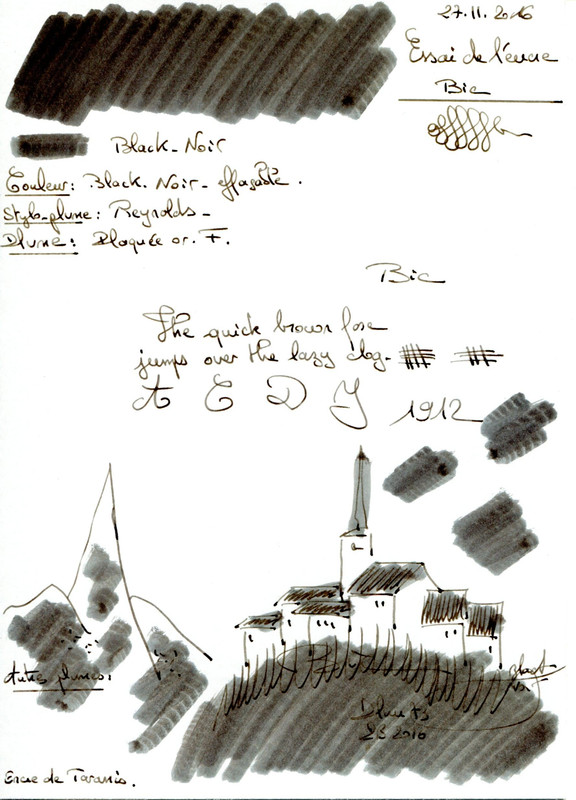 27.11.2016
Essai de l'encre
Bic
Black-Noir
Couleur: Black. Noir- effaçable.
Stylo-plume: Reynolds-
Plume: Plaquée or. F.
Bic
The quick brown fox
jumps over the lazy dog-
A E D J 1912
Autres plumes:
Encre de Taranis.